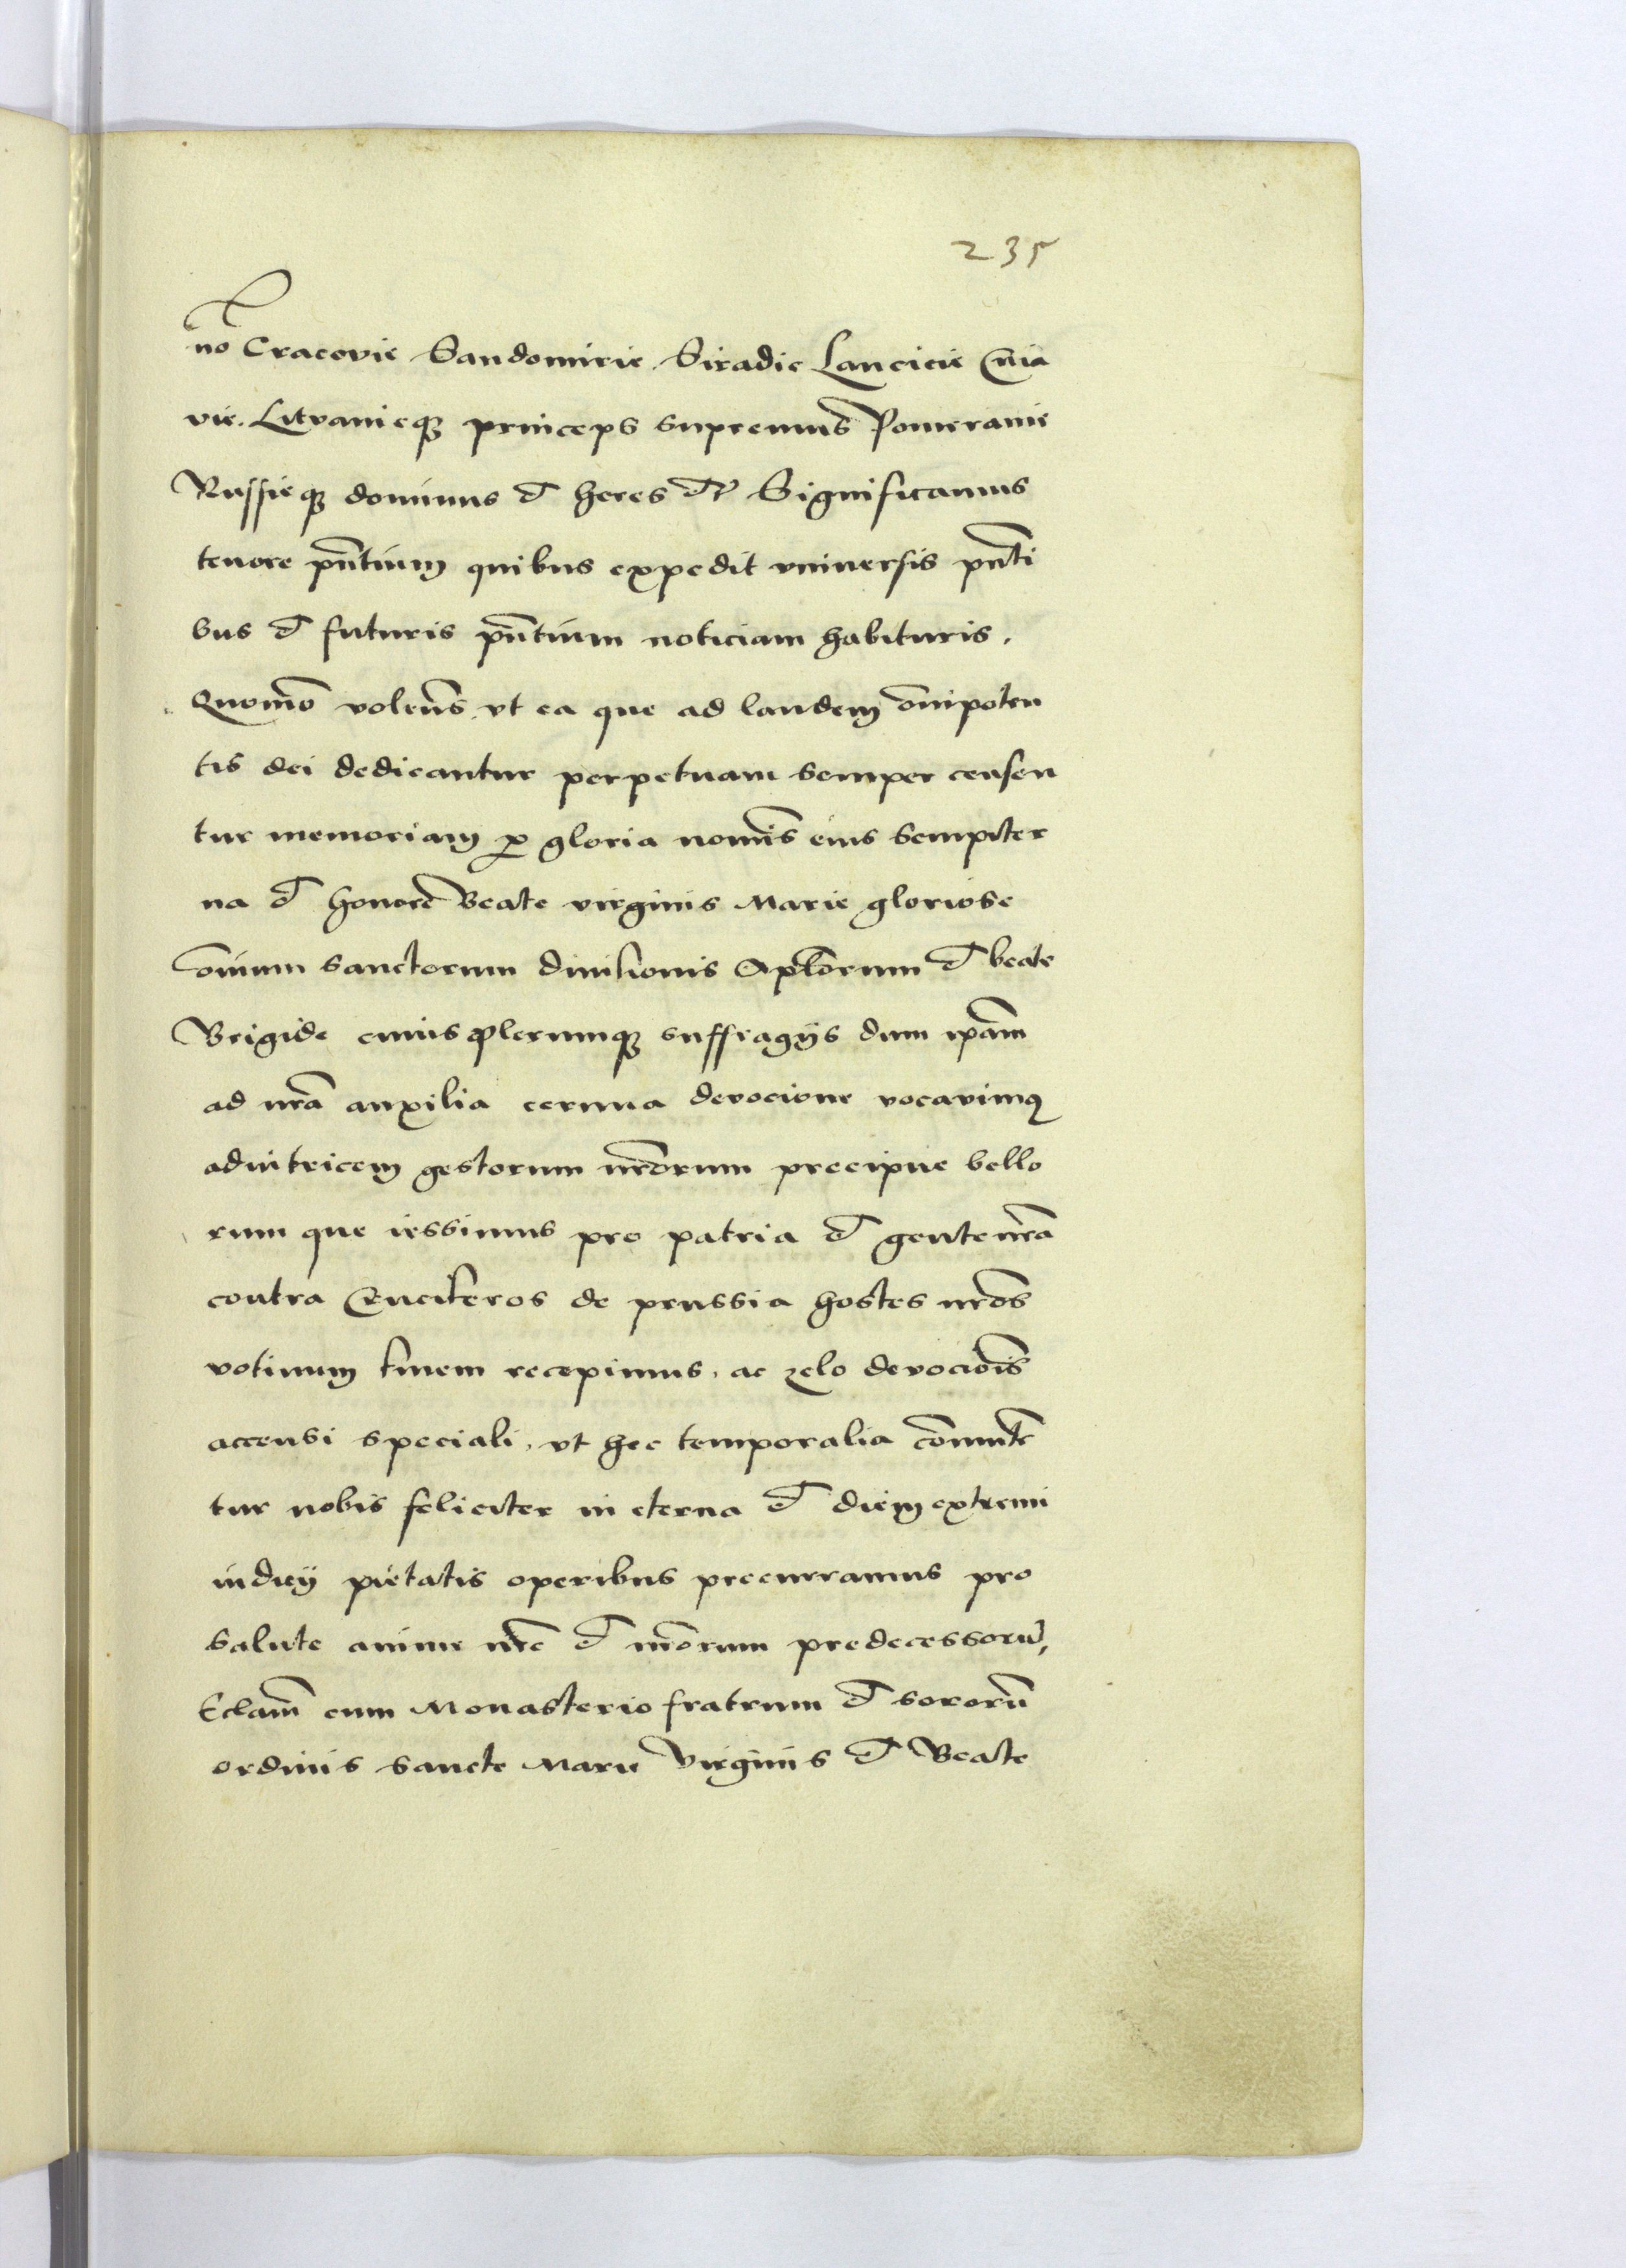 235
no Cracovie Sandomirie Siradie Lancicie Cuia
vie. Litvanieq₃ princeps supremus Pomeranie
Russieq₃ dominus et heres etc̃ Significamus
tenore pñtium quibus expedit vniuersis pñti
bus et futuris pñtium noticiam habituris.
Quomõ volens vt ea que ad laudem õnipoten
tis dei dedicantur perpetuam semper censen
tur memoriam ꝑ gloria nomĩs eius sempiter
na et honorẽ Beate virginis Marie gloriose
õnium sanctorum diuisionis Aplõrum et beate
Brigide cuius plerumq₃ suffragijs dum ipam̃
ad nrã auxilia cernua devocione vocavimꝰ
adiutricem gestorum nrõrum precipue bello
rum que iessimus pro patria et gente nrã
contra Cruciferos de prussia hostes nrõs
votiuum finem recepimus, ac zelo devociõis
accensi speciali, vt hec temporalia cõmute
tur nobis feliciter in eterna et diem extremi
iudicij pietatis operibus precurramus pro
salute anime nrẽ et nrõrum predecessorũ,
Eclãm cum Monasterio fratrum et sororũ
ordinis sancte Marie Virginis et Beate